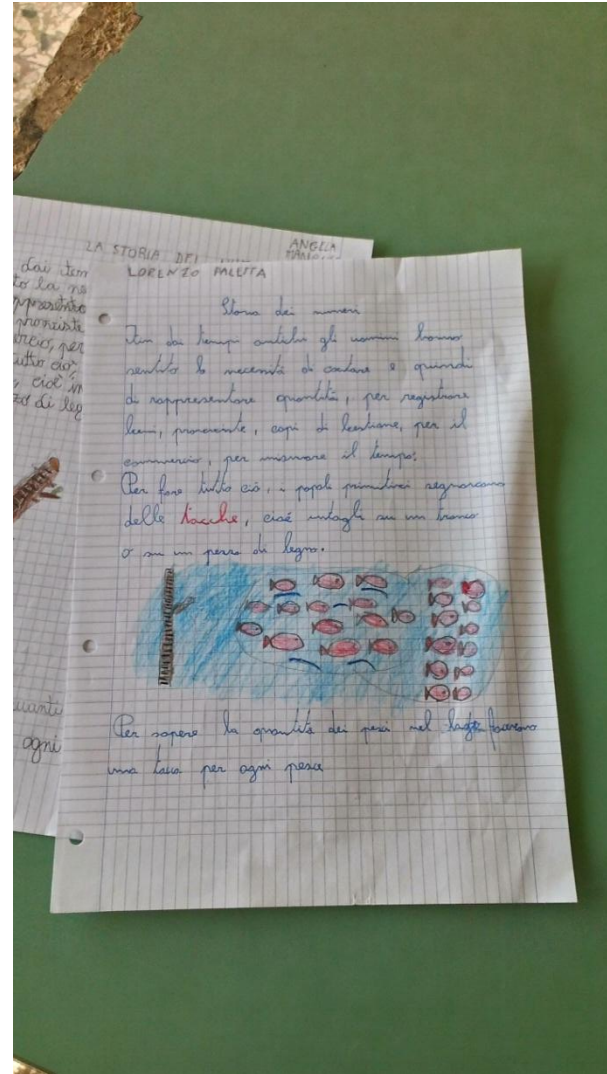 LA STORIA DEI
ANGELA
dai tem
to la ne
ppresentare
provviste
ercio, per
tutto ciò,
, cioè in
zo di leg
uante
ogni
LORENZO PALLITA
Storia dei numeri
Fin dai tempi antichi gli uomini hanno
sentito la necessità di contare e quindi
di rappresentare quantità, per registrare
beni, provviste, capi di bestiame, per il
commercio, per misurare il tempo.
Per fare tutto ciò, i popoli primitivi segnavano
delle tacche, cioé intagli su un tronco
o su un pezzo di legno.
Per sapere la quantità dei pesci nel lago facevano
una tacca per ogni pesce